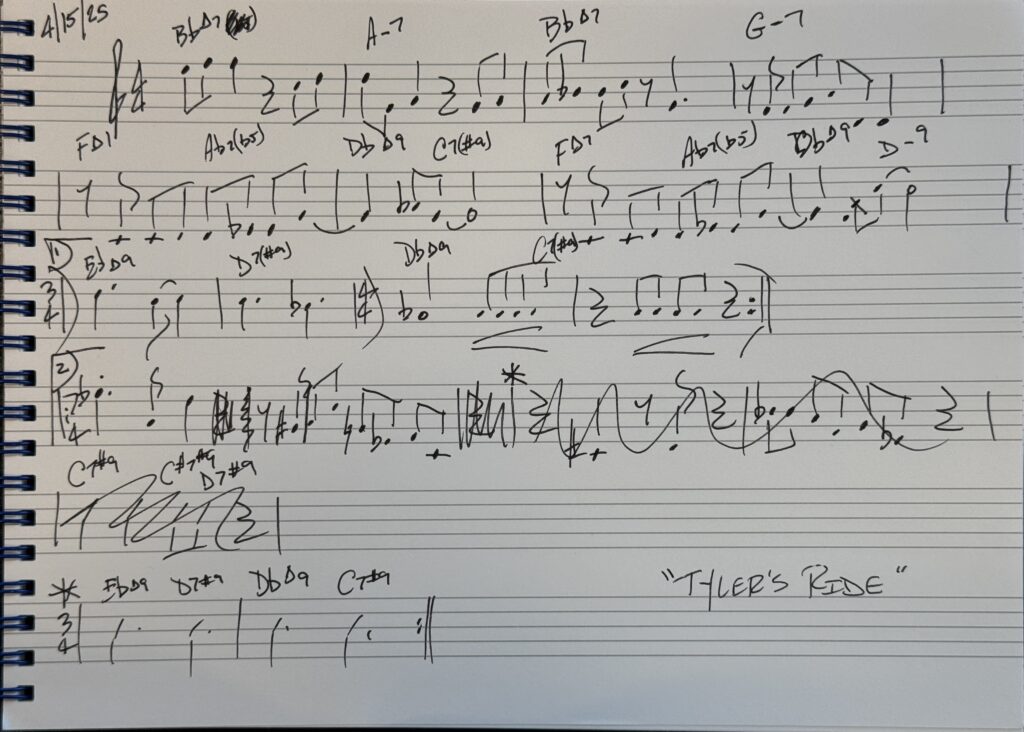 4/15/25
BbΔ7 A-7 BbΔ7 G-7
4
FΔ7 Ab7(b5) DbΔ9 C7(#9) FΔ7 Ab7(b5) BbΔ9 D-9
1
EbΔ9 D7(#9) DbΔ9 C7(#9)
3/4 4/4
2
*
C7#9 C#7#9 D7#9
* EbΔ9 D7#9 DbΔ9 C7#9
3/4
"TYLER'S RIDE"